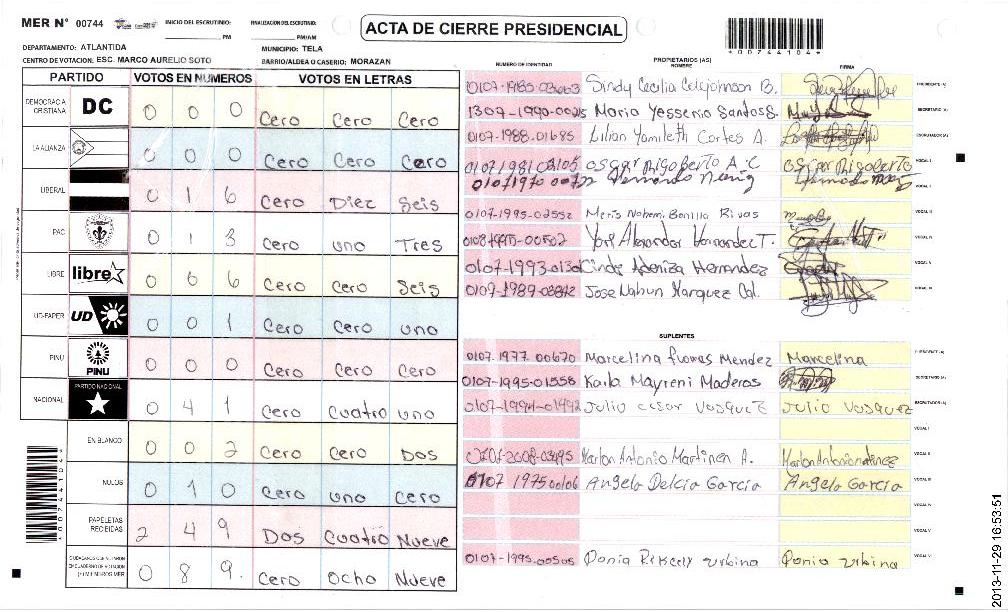 MER N° 00744
INICIO DEL ESCRUTINIO: PM
FINALIZACION DEL ESCRUTINIO: PM/AM
ACTA DE CIERRE PRESIDENCIAL
*00744104*
DEPARTAMENTO: ATLANTIDA
MUNICIPIO: TELA
CENTRO DE VOTACION: ESC. MARCO AURELIO SOTO
BARRIO/ALDEA O CASERIO: MORAZAN
PARTIDO VOTOS EN NUMEROS VOTOS EN LETRAS
DEMOCRACIA CRISTIANA DC 0 0 0 Cero Cero Cero
LA ALIANZA 0 0 0 Cero Cero Cero
LIBERAL 0 1 6 Cero Diez Seis
PAC 0 1 3 Cero uno Tres
LIBRE libre 0 0 6 Cero Cero Seis
UD-FAPER UD 0 0 1 Cero Cero uno
PINU PINU 0 0 0 Cero Cero Cero
NACIONAL PARTIDO NACIONAL 0 4 1 Cero Cuatro uno
EN BLANCO 0 0 2 Cero Cero Dos
NULOS 0 1 0 Cero uno Cero
PAPELETAS RECIBIDAS 2 4 9 Dos Cuatro Nueve
CIUDADANOS QUE VOTARON EN CUADERNO DE VOTACION (+) MIEMBROS MER 0 8 9. Cero Ocho Nueve
*00744104*
PROPIETARIOS (AS)
NUMERO DE IDENTIDAD NOMBRE FIRMA
Sindy Cecilia B. PRESIDENTE (A)
1307-1990-00215 Maria Yessenia Santos S. SECRETARIO (A)
0107-1988-01685 Lilian Yamileth Cortes A. ESCRUTADOR (A)
0107 1981 02105 Oscar Rigoberto A.C Oscar Rigoberto VOCAL I
VOCAL II
0107-1995-02552 Meris Nohemi Bonilla Rivas VOCAL III
Alexander Hernandez T. VOCAL IV
Hernandez VOCAL V
0107-1989-03842 Jose Nahun Marquez
SUPLENTES
0107-1977-00670 Marcelina Mendez Marcelina PRESIDENTE (A)
0107-1995-01558 Karla Mayreni Maderos SECRETARIO (A)
0107-1994-01492 Julio cesar Vasquez Julio Vasquez ESCRUTADOR (A)
VOCAL I
Marlon Antonio Martinez A. VOCAL II
0107 1975 00106 Angela Delcia Garcia Angela Garcia VOCAL III
VOCAL IV
VOCAL V
0107-1995-00505 urbina urbina
2013-11-29 16:53:51